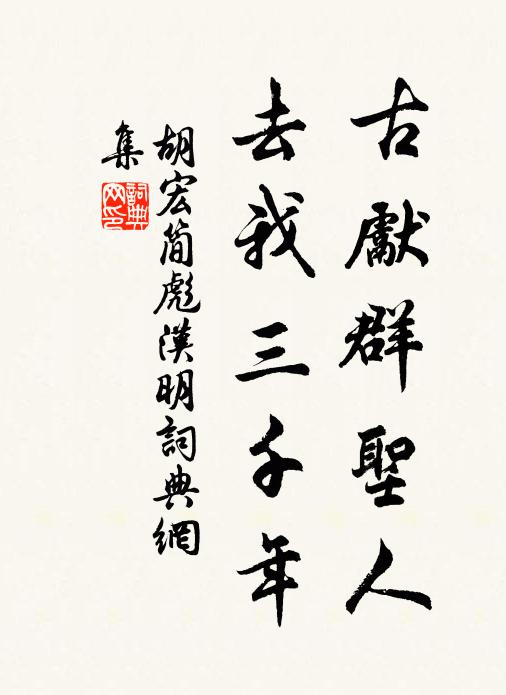 古獻群聖人
去我三千年
胡宏簡彪漢明詞典網
集
詞典網印